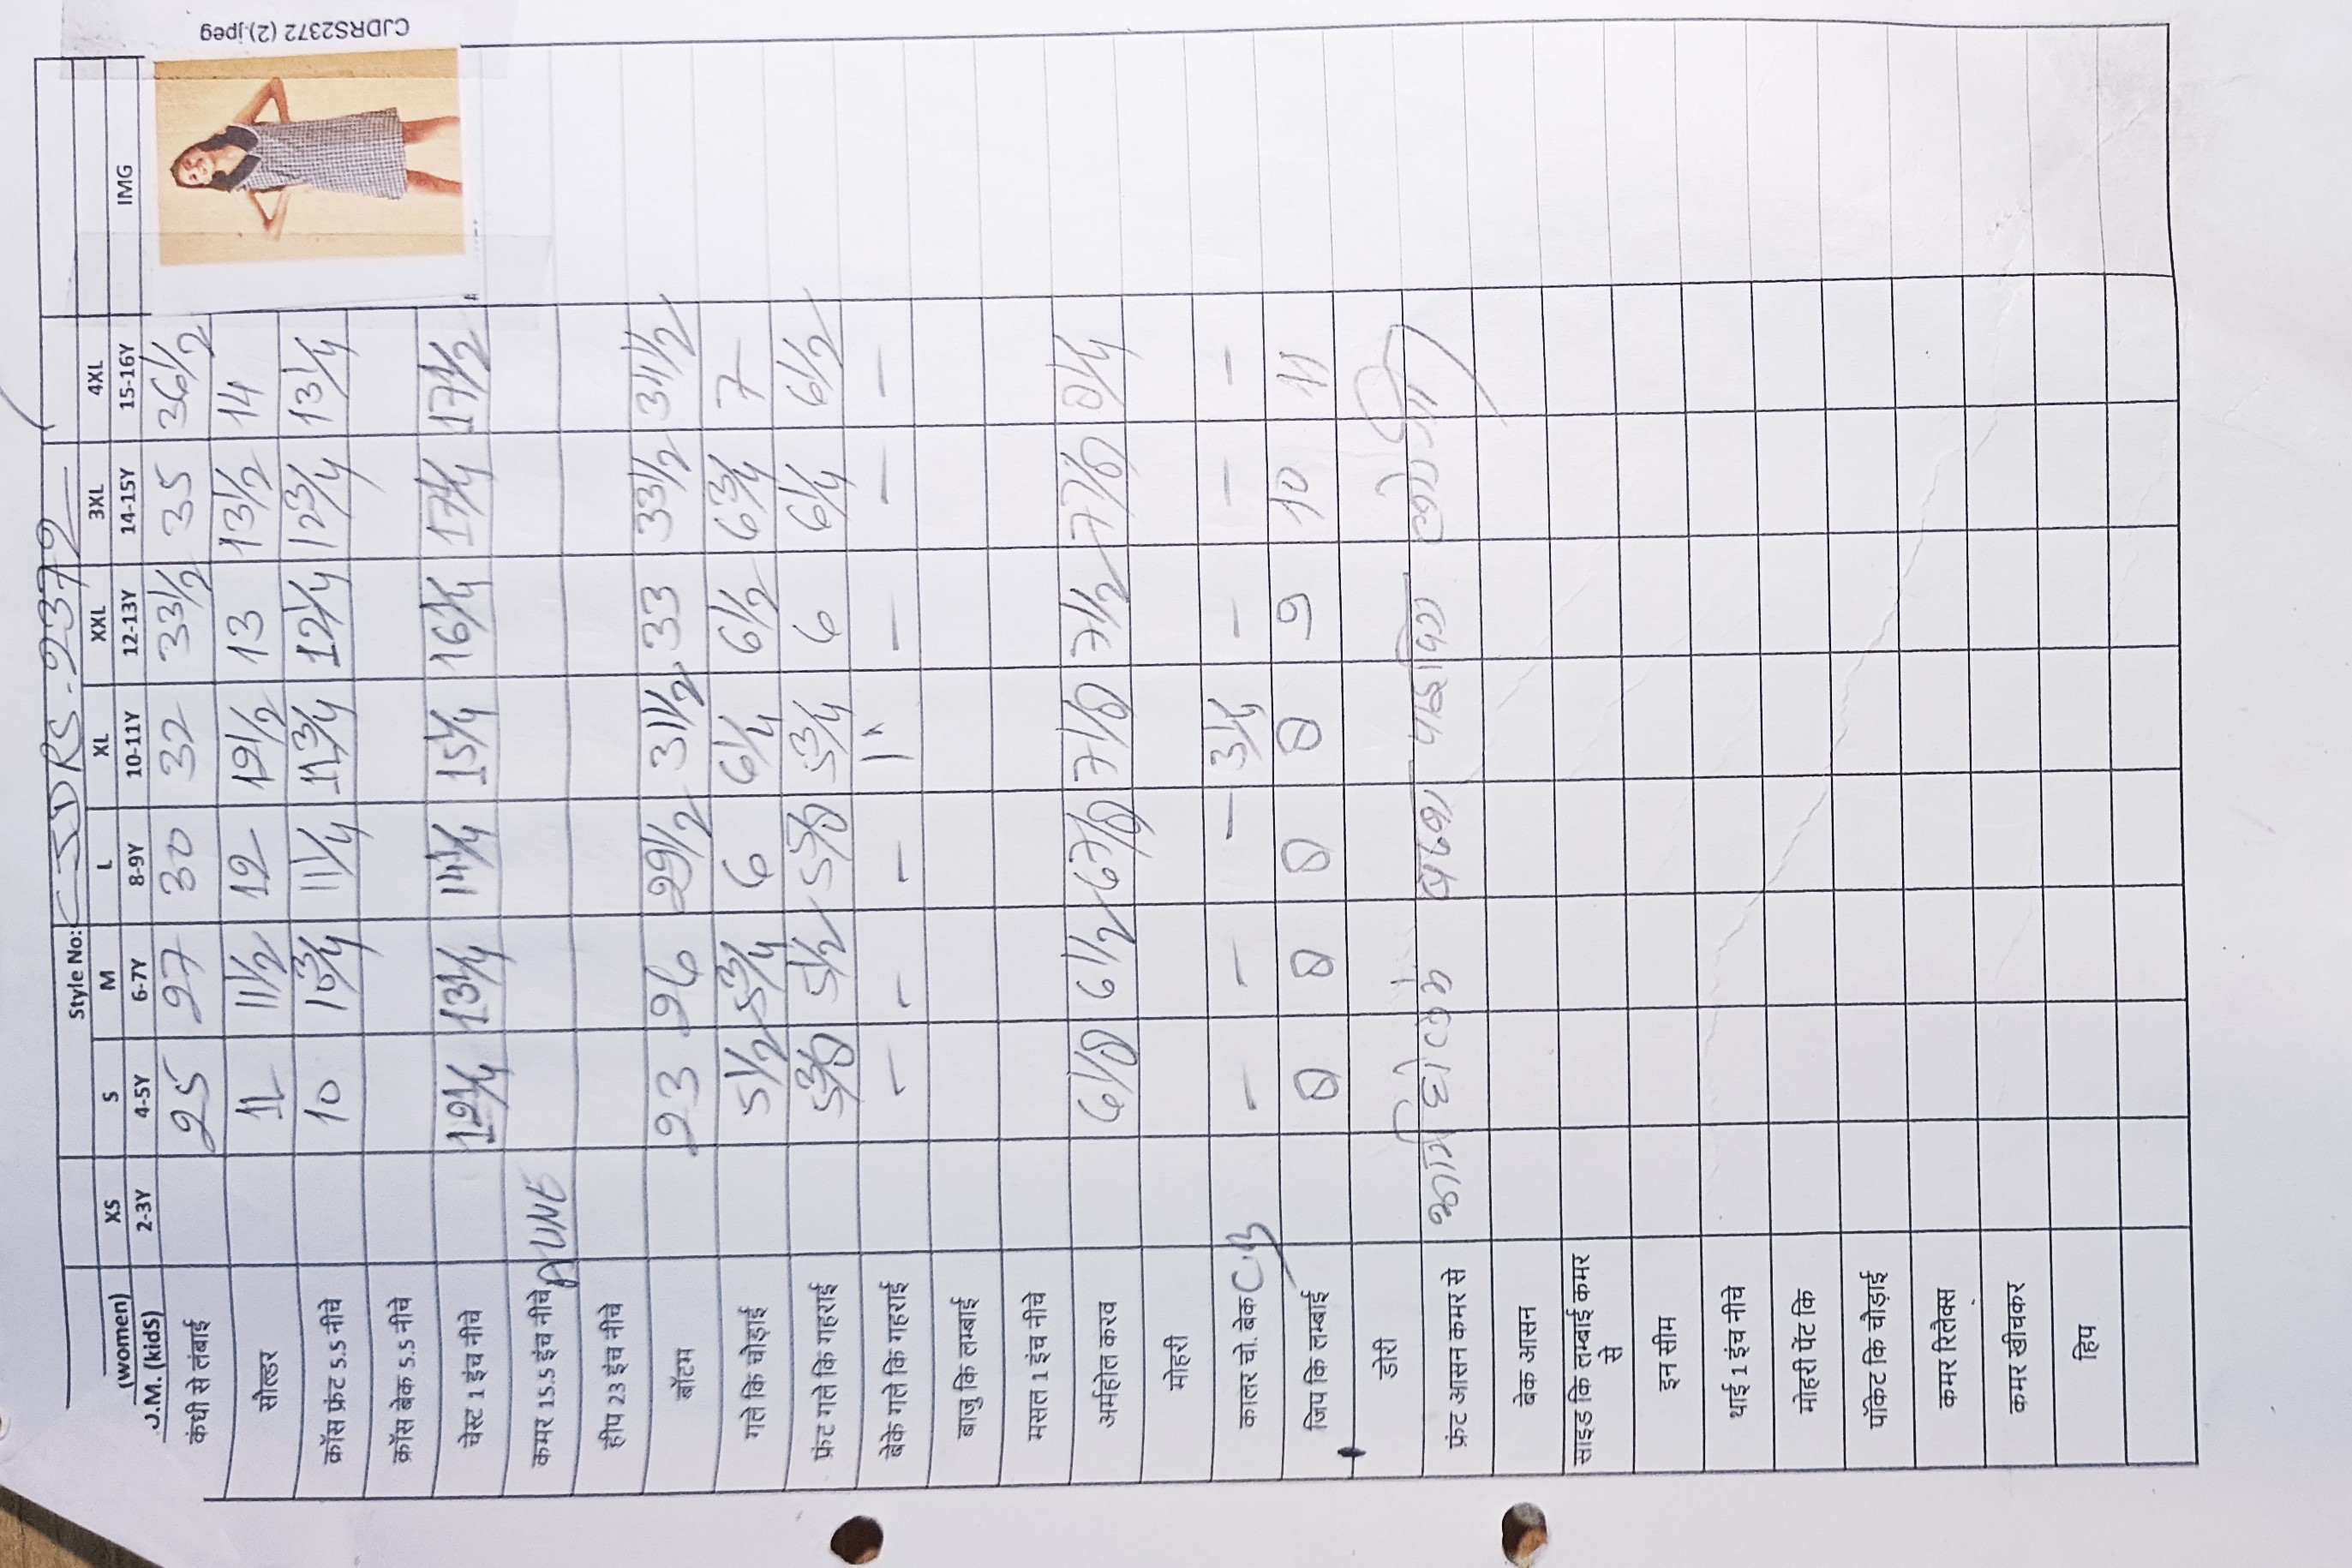 CJDRS2372 (2).jpeg
Style No: CJDRS-2372
(women) XS S M L XL XXL 3XL 4XL IMG
J.M. (kidS) 2-3Y 4-5Y 6-7Y 8-9Y 10-11Y 12-13Y 14-15Y 15-16Y
कंधी से लंबाई 25 27 30 32 33 1/2 35 36 1/2
सोल्डर 11 11 1/2 12 12 1/2 13 13 1/2 14
क्रॉस फ्रंट 5.5 नीचे 10 10 3/4 11 1/4 11 3/4 12 1/4 12 3/4 13 1/4
क्रॉस बेक 5.5 नीचे
चेस्ट 1 इंच नीचे 12 1/4 13 1/4 14 1/4 15 1/4 16 1/4 17 1/4 17 1/2
कमर 15.5 इंच नीचे
हीप 23 इंच नीचे
बॉटम 23 26 29 1/2 31 1/2 33 33 1/2 31 1/2
गले कि चोड़ाई 5 1/2 5 3/4 6 6 1/4 6 1/2 6 3/4 7
फ्रंट गले कि गहराई 5 3/8 5 1/2 5 5/8 5 3/4 6 6 1/4 6 1/2
बेके गले कि गहराई - - - 1" - - -
बाजु कि लम्बाई
मसल 1 इंच नीचे
अर्महोल करव 6 1/8 6 1/2 6 7/8 7 1/8 7 1/2 7 7/8 8 1/4
मोहरी
कालर चो. बेक C.B - - - 3 1/4 - - -
जिप कि लम्बाई 8 8 8 8 9 10 11
डोरी
फ्रंट आसन कमर से पाइपिंग
बेक आसन
साइड कि लम्बाई कमर से
इन सीम
थाई 1 इंच नीचे
मोहरी पेंट कि
पॉकेट कि चौड़ाई
कमर रिलैक्स
कमर खीचकर
हिप